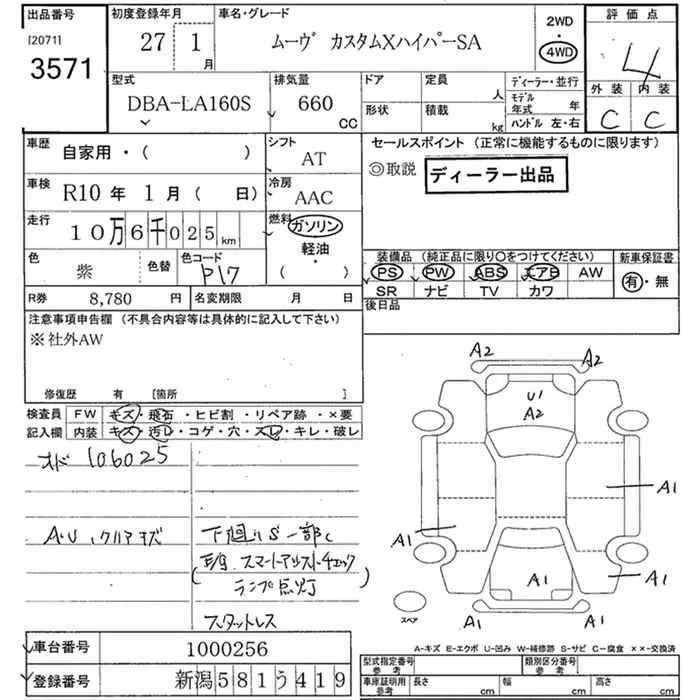 出品番号 初度登録年月 車名・グレード 2WD 評価点
[2071] 27 1 ムーヴ カスタムXハイパーSA ・
3571 月 4WD 4
型式 排気量 ドア 定員 ディーラー・並行 外装 内装
DBA-LA160S 660 人 モデル
CC 形状 積載 年式 年 C C
kg ハンドル 左・右
車歴 自家用・( ) シフト セールスポイント (正常に機能するものに限ります)
AT ◎取説 ディーラー出品
車検 R10 年 1 月 ( 日) 冷房
AAC
走行 10万6千025 km 燃料 ガソリン
軽油
・
( )
色 紫 色替 色コード P17 装備品 (純正品に限り○をつけてください) 新車保証書
PS PW ABS エアB AW 有・無
SR ナビ TV カワ
R券 8,780 円 名変期限 月 日 後日品
注意事項申告欄 (不具合内容等は具体的に記入して下さい)
※社外AW
修復歴 有 [箇所 ]
検査員 FW キズ・飛石・ヒビ割・リペア跡・×要
記入欄 内装 キズ・汚レ・コゲ・穴・スレ・キレ・破レ
オド 106025
A.U、クリアキズ 下廻りS一部C
(E/g、スマートアシストチェック
ランプ点灯)
スタットレス
A2 A2
U1
A2
A1
A1
A1 A1
A1 A1
スペア
A-キズ E-エクボ U-凹み W-補修跡 S-サビ C-腐食 ××-交換済
車台番号 1000256
登録番号 新潟581う419
型式指定番号 参考 類別区分番号 参考
車庫証明用 参考 長さ cm 幅 cm 高さ cm